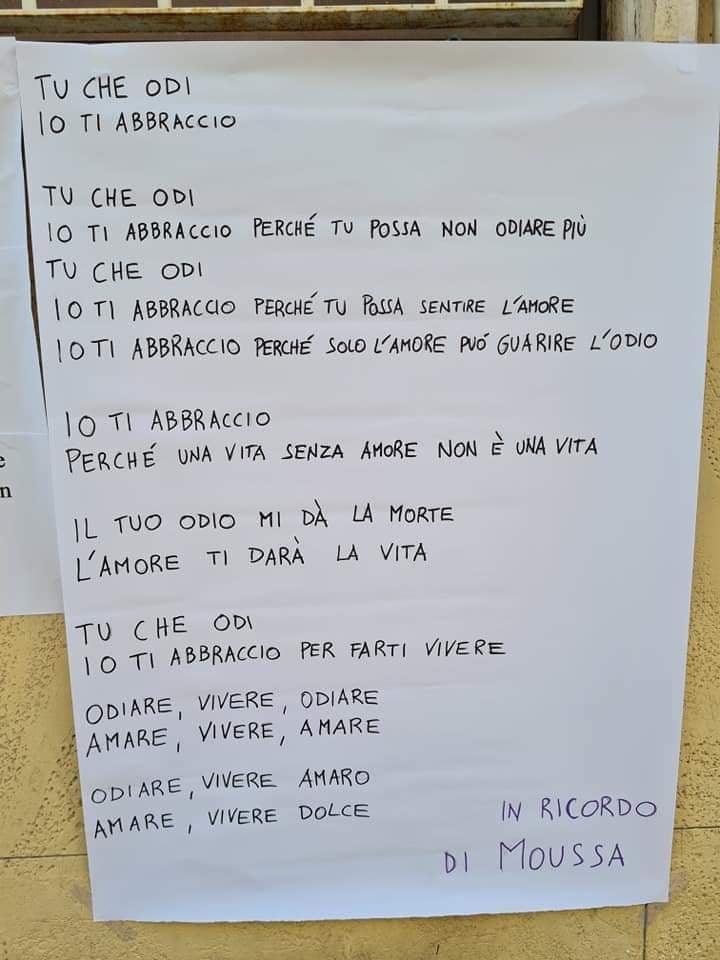 TU CHE ODI
IO TI ABBRACCIO
TU CHE ODI
IO TI ABBRACCIO PERCHÉ TU POSSA NON ODIARE PIÙ
TU CHE ODI
IO TI ABBRACCIO PERCHÉ TU POSSA SENTIRE L'AMORE
IO TI ABBRACCIO PERCHÉ SOLO L'AMORE PUÓ GUARIRE L'ODIO
IO TI ABBRACCIO
PERCHÉ UNA VITA SENZA AMORE NON È UNA VITA
IL TUO ODIO MI DÀ LA MORTE
L'AMORE TI DARÀ LA VITA
TU CHE ODI
IO TI ABBRACCIO PER FARTI VIVERE
ODIARE, VIVERE, ODIARE
AMARE, VIVERE, AMARE
ODIARE, VIVERE AMARO
AMARE, VIVERE DOLCE
IN RICORDO
DI MOUSSA
e
n